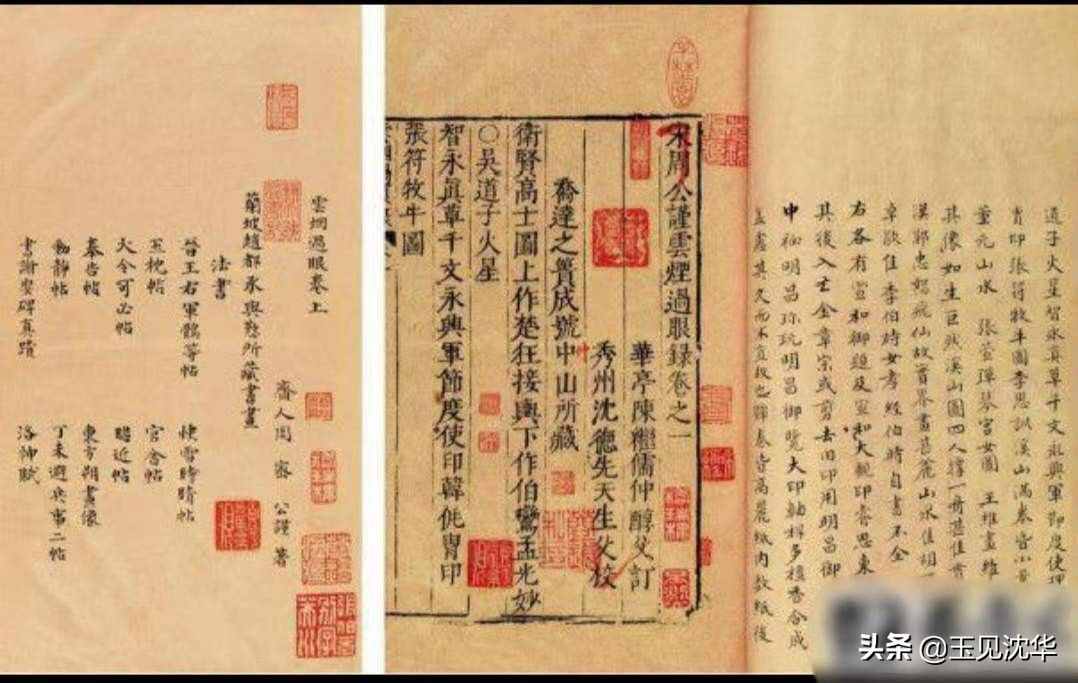 雲烟過眼卷上
齊人周密公謹著
蘭坡趙都承與懃所藏書畫
法書
晉王右軍鵝等帖 快雪時晴帖
玉枕帖 官舍帖
大令可必帖 瞻近帖
奉告帖 東方朔畫像
動靜帖 丁未避兵事二帖
書謝碑真蹟 洛神賦
宋周公謹雲煙過眼錄卷之一
華亭陳繼儒仲醇父訂
秀州沈德先天生父校
喬達之簣成號中山所藏
衛賢高士圖上作楚狂接輿下作伯鸞孟光妙
〇吳道子火星
智永眞草千文永興軍節度使印韓侂胄印
張符牧牛圖
道子火星智永真草千文永興軍節度使
印張符牧牛圖李思訓溪山滿卷皆小
董元山水 張萱彈琴宮女圖 王維畫維
其像如生巨然溪山圖四人一奇甚佳
郭忠恕飛仙故實界畫甚麗山水佳胡
佳李伯時女孝經伯時自書不全
右各有宣和御題及宣和大觀印喬思東
其後入亡金章宗或剪去旧印用明昌御
中秘明昌珍玩明昌御覽大印軸桿多檀香合成
蓋慮其久而不卷皆高麗紙內數紙後
头条 @玉见沈华